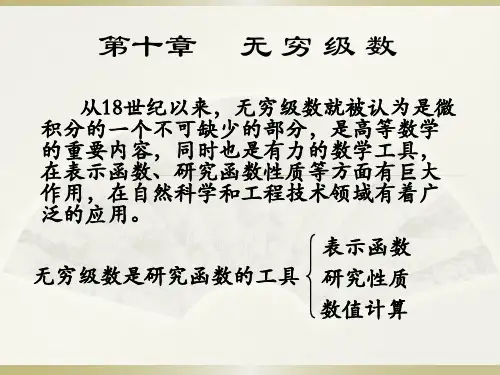 第十章 无穷级数
从18世纪以来，无穷级数就被认为是微
积分的一个不可缺少的部分，是高等数学
的重要内容，同时也是有力的数学工具，
在表示函数、研究函数性质等方面有巨大
作用，在自然科学和工程技术领域有着广
泛的应用。
表示函数
无穷级数是研究函数的工具 研究性质
数值计算